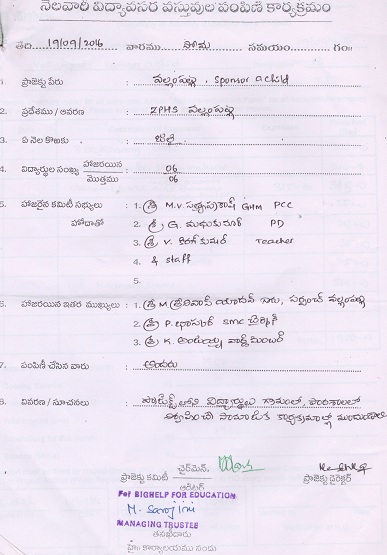 నెలవారీ విద్యావసర వస్తువుల పంపిణీ కార్యక్రమం
తేది 19/09/2016 వారము సోమ సమయం గం॥
1. ప్రాజెక్టు పేరు : వల్లంపట్ల, Sponsor a child
2. ప్రదేశము / ఆవరణ : ZPHS వల్లంపట్ల
3. ఏ నెల కొఱకు : జులై
4. విద్యార్థుల సంఖ్య హాజరయిన : 06
మొత్తము 06
5. హాజరైన కమిటీ సభ్యులు : 1. శ్రీ M.V. GHM PCC
హోదాతో 2. శ్రీ G. మధుకుమార్ PD
3. శ్రీ V. కిరణ్ కుమార్ Teacher
4. & staff
5.
6. హాజరయిన ఇతర ముఖ్యులు : 1. శ్రీ M శ్రీనివాస్ యాదవ్ గారు, సర్పంచ్ వల్లంపట్ల
2. శ్రీ P. భాస్కర్ SMC చైర్మన్
3. శ్రీ K. అంజయ్య వార్డ్ మెంబర్
7. పంపిణీ చేసిన వారు : అందరు
8. వివరణ / సూచనలు : విద్యార్థులు గ్రామంలో, పాఠశాలలో
సామాజిక కార్యక్రమాల్లో ముందుండాలి
చైర్‌మెన్,
ప్రాజెక్టు కమిటీ ప్రాజెక్టు డైరెక్టర్
ఆడిటర్
For BIGHELP FOR EDUCATION
M. Sarojini
MANAGING TRUSTEE
తనఖీదారు
హై॥ కార్యాలయము నందు